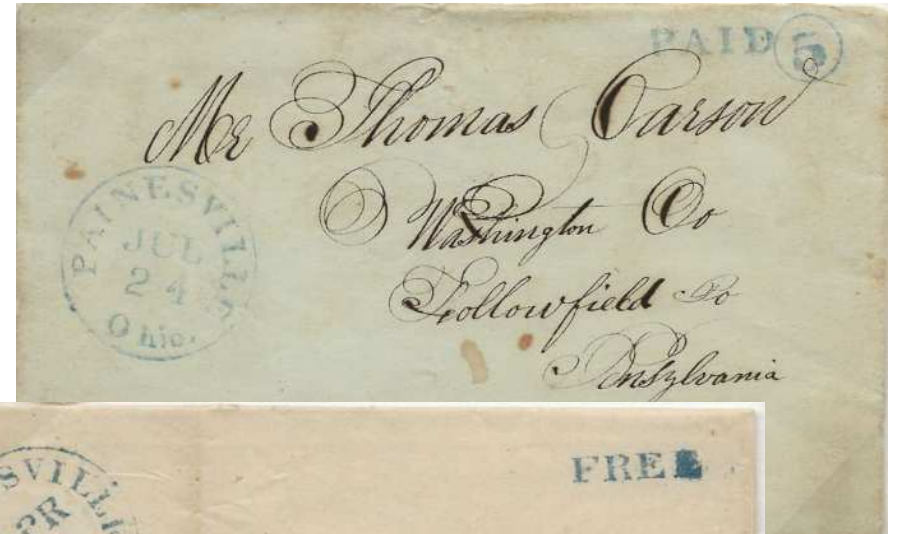 PAID 5
Mr Thomas Carson
Washington Co
Follow field Po
Pensylvania
PAINESVILLE
JUL
24
Ohio.
FREE
SVILLE
PR